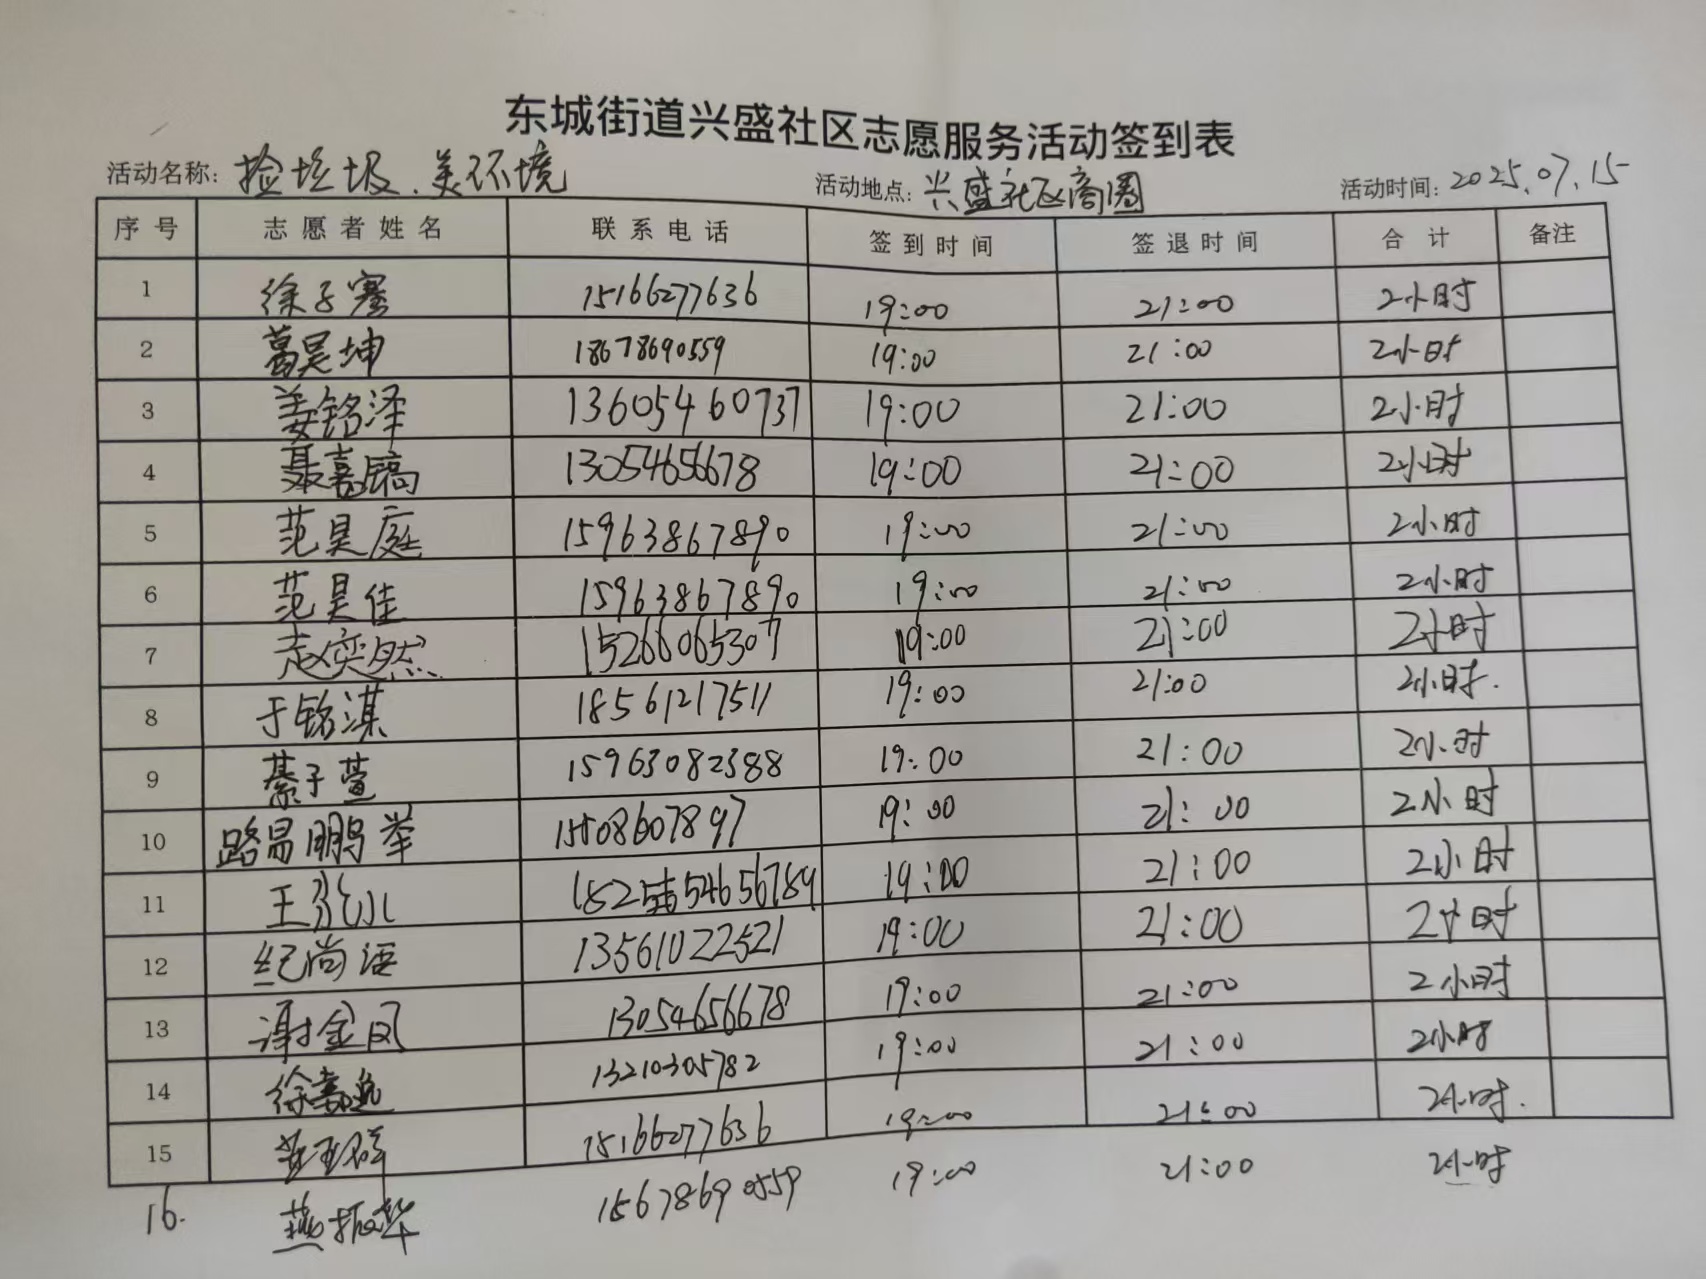 东城街道兴盛社区志愿服务活动签到表
活动名称: 捡垃圾.美环境 活动地点: 兴盛社区商圈 活动时间: 2025.07.15
序号 志愿者姓名 联系电话 签到时间 签退时间 合计 备注
1 徐子骞 15166277636 19:00 21:00 2小时
2 葛昊坤 18678690559 19:00 21:00 2小时
3 姜铭泽 13605460737 19:00 21:00 2小时
4 聂嘉镐 13054656678 19:00 21:00 2小时
5 范昊庭 15963867890 19:00 21:00 2小时
6 范昊佳 15963867890 19:00 21:00 2小时
7 赵奕然 15266065307 19:00 21:00 2小时
8 于铭淇 18561217511 19:00 21:00 2小时.
9 綦子萱 15963082388 19:00 21:00 2小时
10 路易鹏举 15508607897 19:00 21:00 2小时
11 19:00 21:00 2小时
12 纪尚语 13561022521 19:00 21:00 2小时
13 谢金凤 13054656678 19:00 21:00 2小时
14 徐嘉逸 13210305782 19:00 21:00 2小时
15 15166277636 19:00 21:00 2小时.
16. 燕振华 15678690559 19:00 21:00 2小时